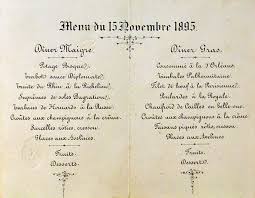 Menu du 15 Novembre 1895.
Dîner Maigre.
Potage Bosquet.
Turbot sauce Diplomate.
Truite du Rhin à la Richelieu.
Suprêmes de soles Bagration.
de Homards à la Russe.
Croûtes aux champignons à la crème.
Sarcelles rôties, cresson.
Glaces aux
Fruits.
Desserts.
Dîner Gras.
Consommé à la D'Orléans.
Timbales
Filet de bœuf à la Parisienne.
Poulardes à la Royale.
Chaufroid de Cailles en belle-vue.
Croûtes aux champignons à la crème.
Faisans piqués rôtis, cresson.
Glaces aux Avelines
Fruits.
Desserts.